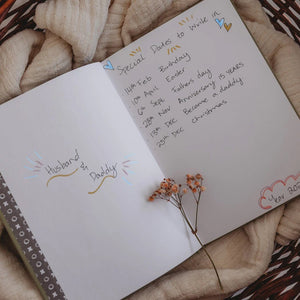 Husband
&
Daddy
Special Dates to write in
14th Feb Birthday
10th April Easter
6th Sept Fathers day
28th Nov Anniversary 15 YEARS
13th DEC Became a daddy
25th DEC Christmas